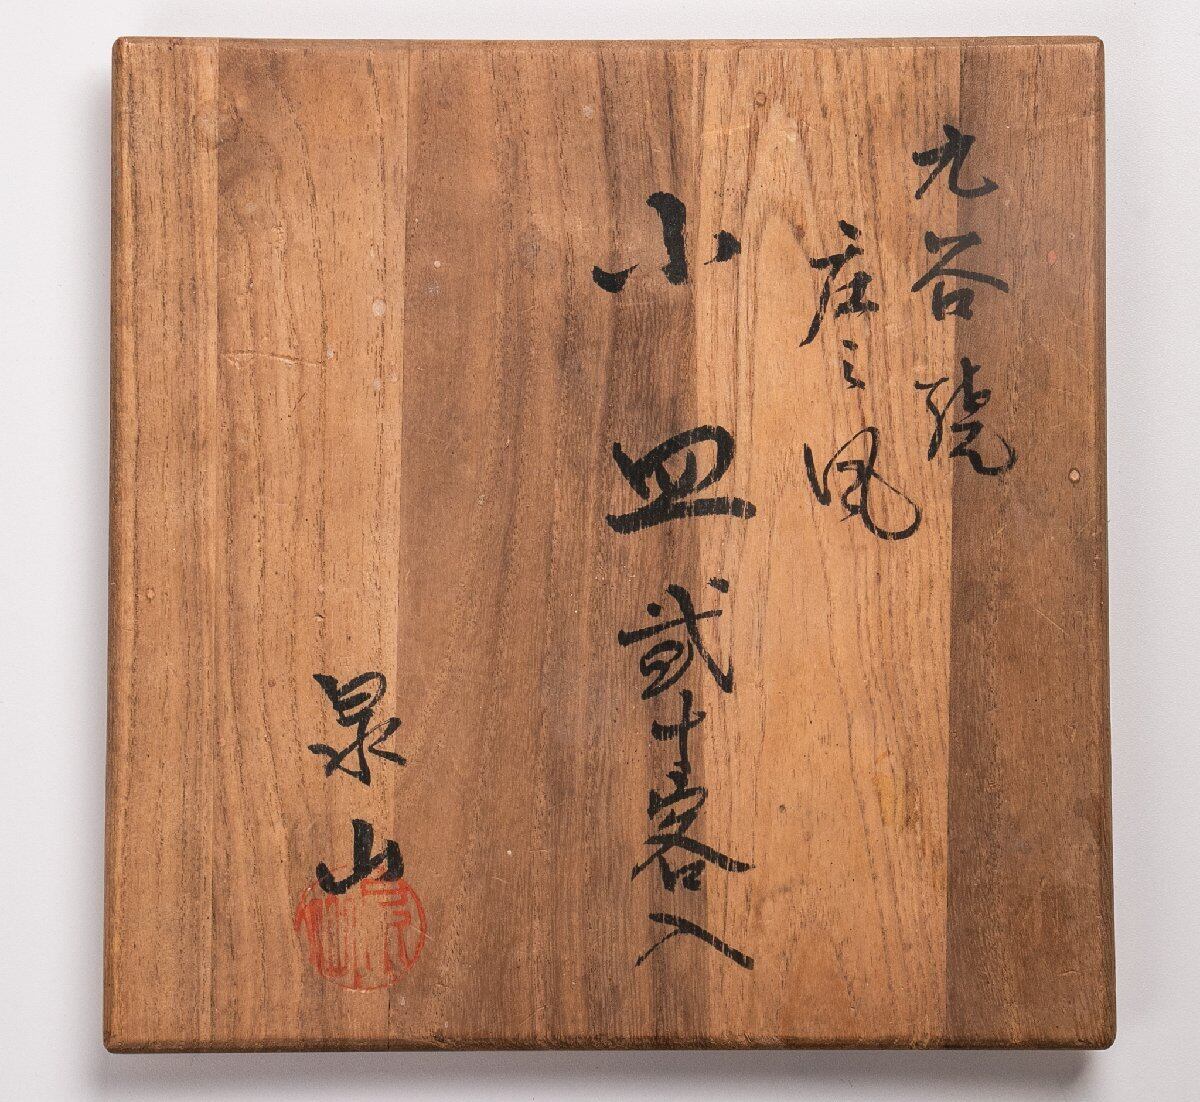 九谷焼
庄之風
小皿貳十客入
泉山